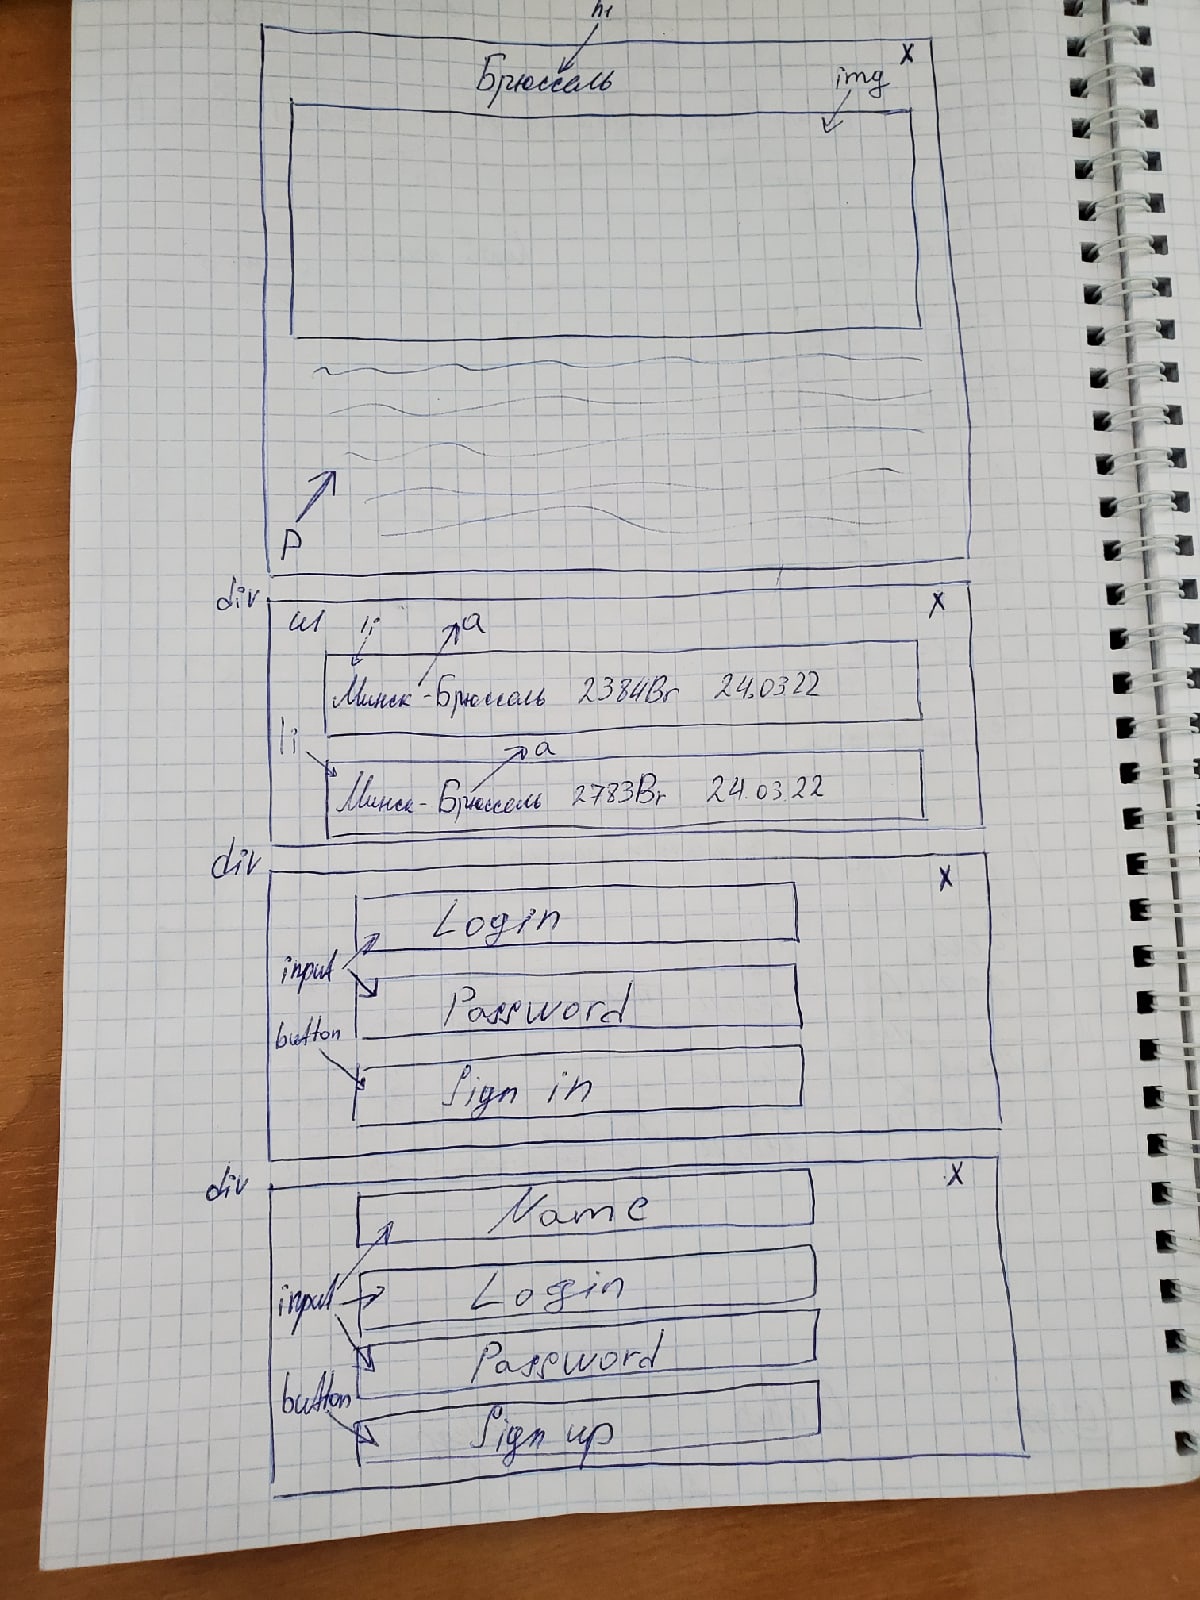 h1
Брюссель X
img
p
div
ul li a X
Минск-Брюссель 2384Br 24.03.22
li a
Минск-Брюссель 2783Br 24.03.22
div
X
Login
input
Password
button
Sign in
div
X
Name
input
Login
Password
button
Sign up